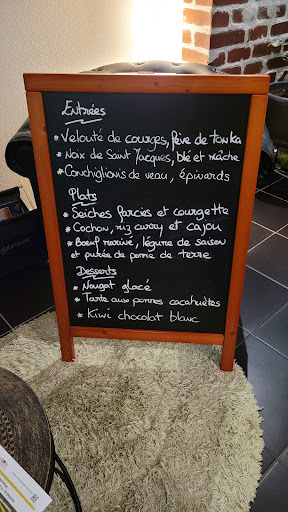 Entrées
* Velouté de courges, fève de tonka
* Noix de Saint Jacques, blé et mâche
* Conchiglionis de veau, épinards
Plats
* Seiches farcies et courgette
* Cochon, riz curry et cajou
* Boeuf mariné, légume de saison
et purée de pomme de terre
Desserts
* Nougat glacé
* Tarte aux pommes cacahuètes
* Kiwi chocolat blanc